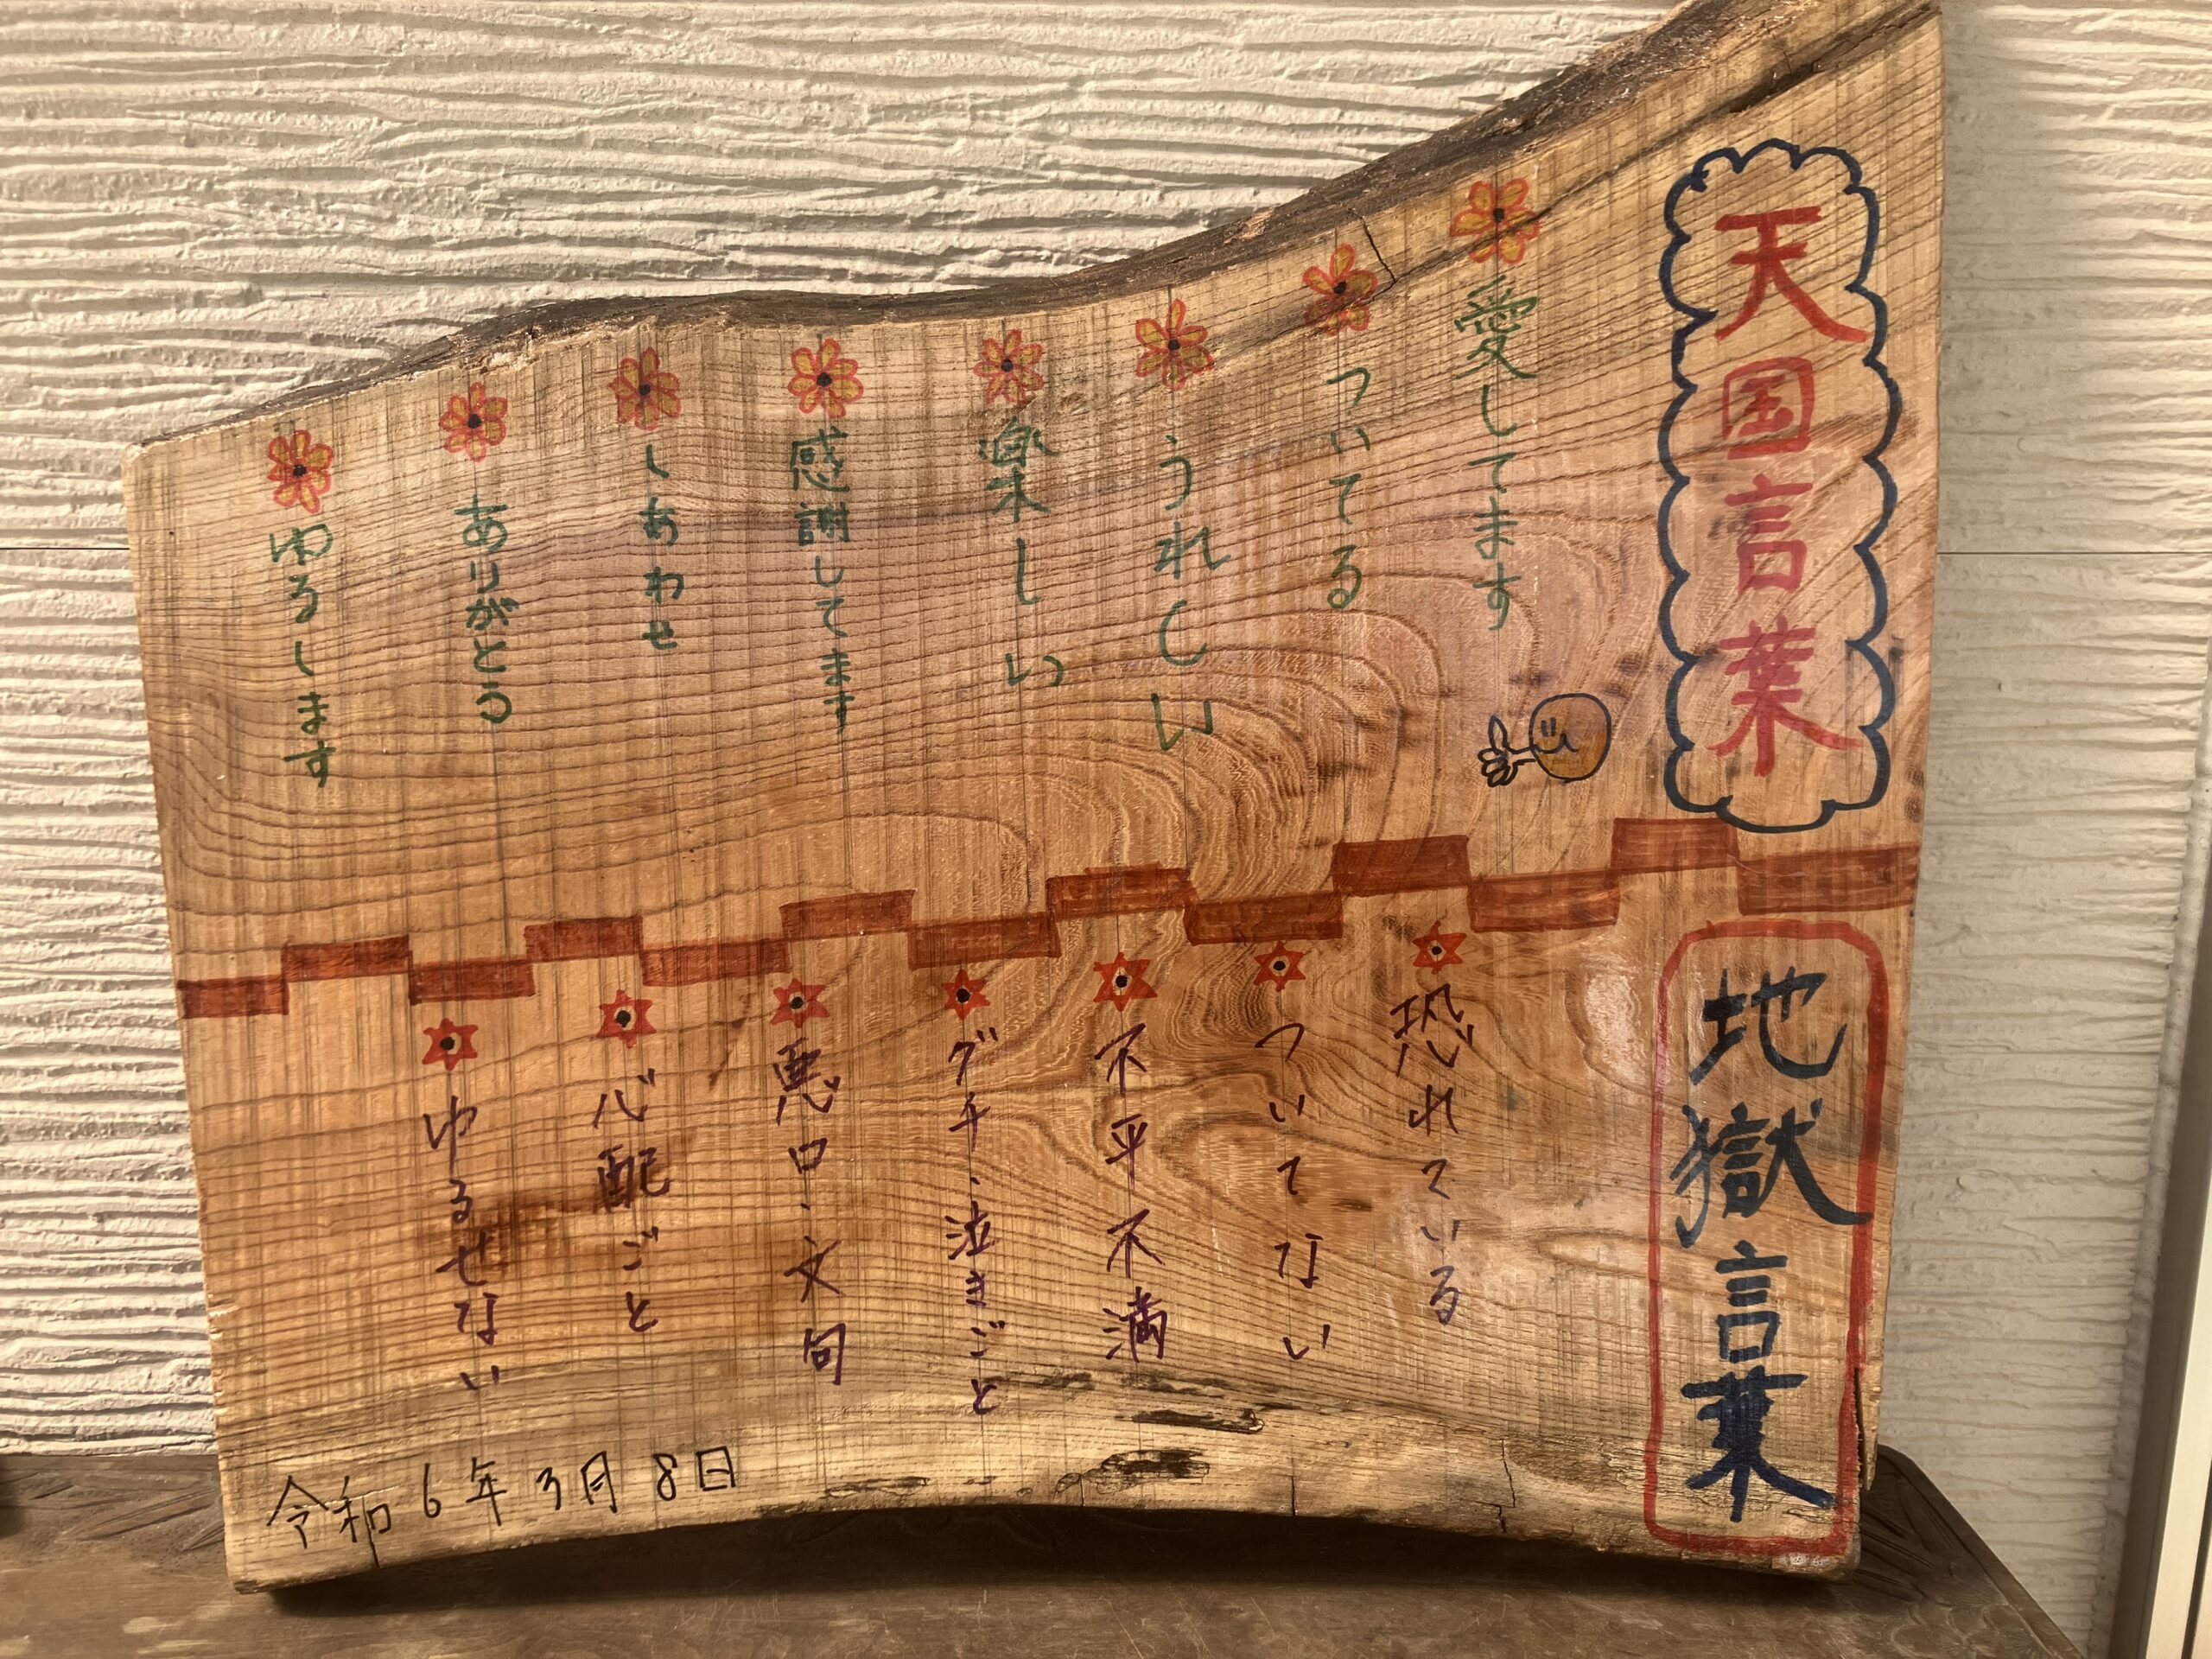 天国言葉
愛してます
ついてる
うれしい
楽しい
感謝してます
しあわせ
ありがとう
ゆるします
地獄言葉
恐れている
ついてない
不平不満
グチ・泣きごと
悪口・文句
心配ごと
ゆるせない
令和6年3月8日